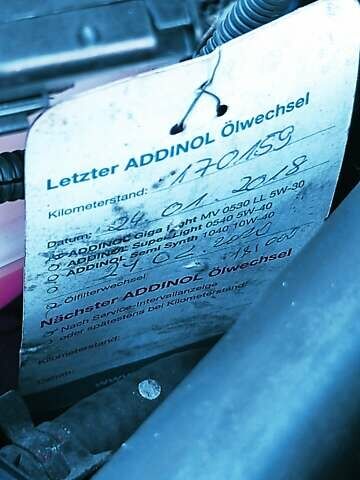 Letzter ADDINOL Ölwechsel
Kilometerstand: 170159
Datum: 24.01.2018
ADDINOL Giga Light MV 0530 LL 5W-30
ADDINOL Super Light 0540 5W-40
ADDINOL Semi Synth 1040 10W-40
Ölfilterwechsel
Nächster ADDINOL Ölwechsel
Nach Service-Intervallanzeige
oder spätestens bei Kilometerstand:
Kilometerstand:
Datum: